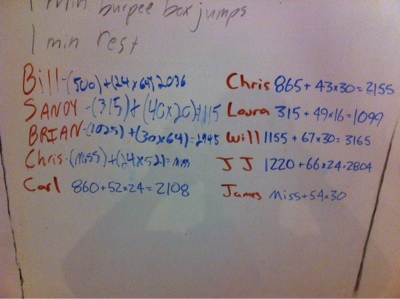 1 min burpee box jumps
1 min rest
Bill -(500)+(24x64) 2036
SANDY -(315)+(40x20)=1115
BRIAN -(1025)+(30x64)=2945
Chris -(miss)+(24x52)=miss
Carl 860+52x24=2108
Chris 865+43x30=2155
Laura 315+49x16=1099
Will 1155+67x30=3165
JJ 1220+66x24=2804
James miss+54x30